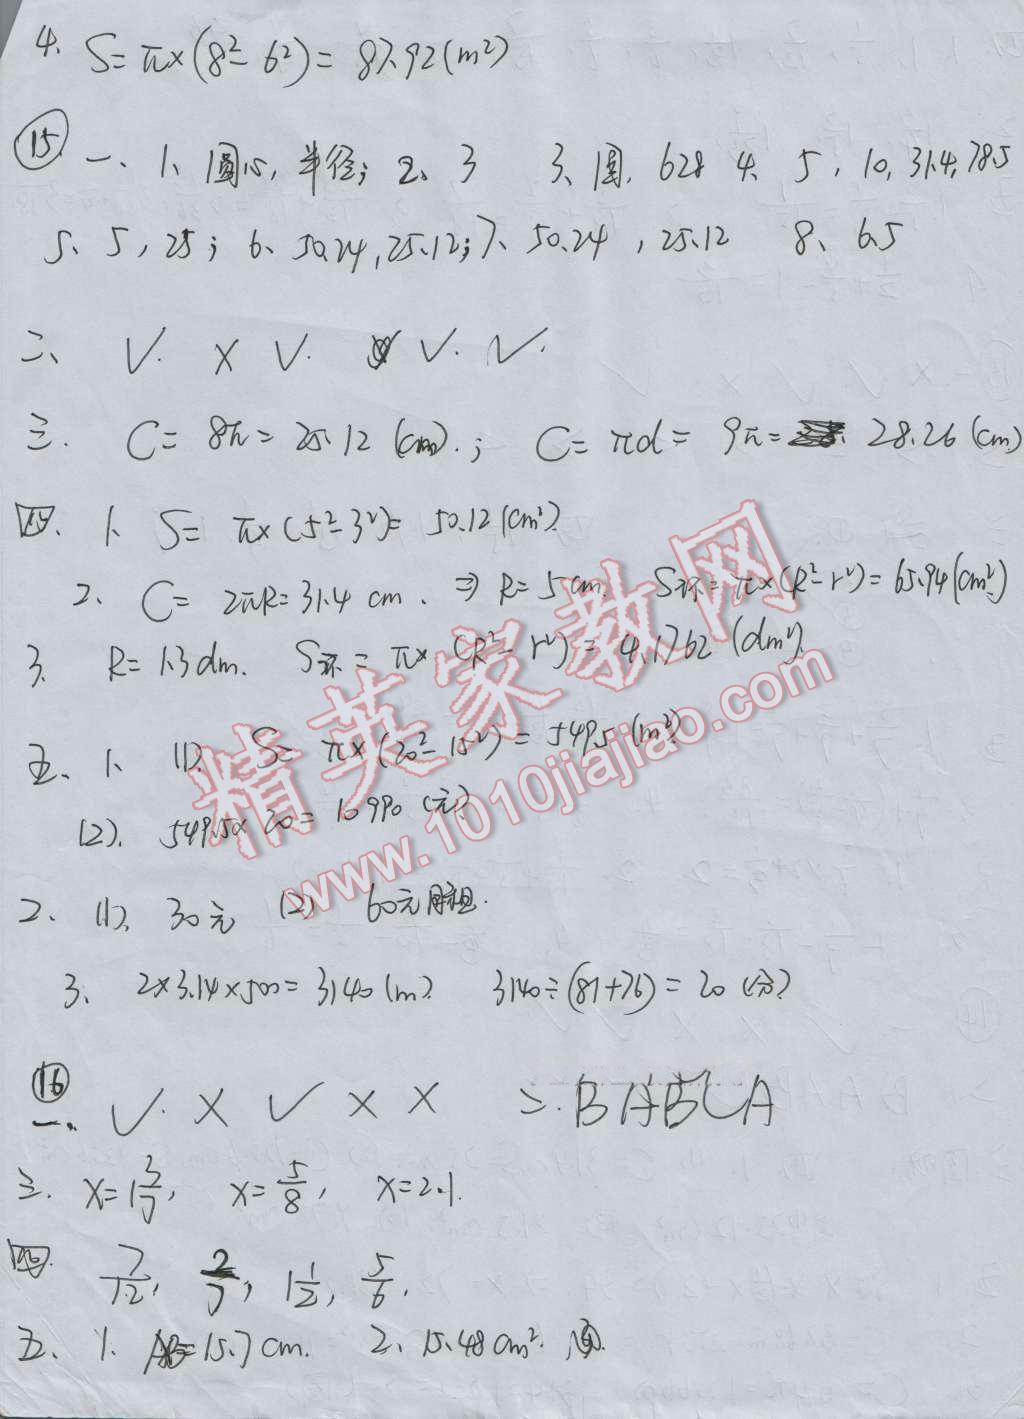 4、S=π×(8²-6²)=87.92(m²)
⑮ 一、1、圆心,半径; 2、3 3、圆, 628 4、5, 10, 31.4, 78.5
5、5, 25; 6、50.24, 25.12; 7、50.24, 25.12 8、6.5
二、√. × √. √. √.
三. C=8π=25.12(cm).; C=πd=9π= 28.26(cm)
四. 1、S=π×(5²-3²)=50.12(cm²).
2、C=2πR=31.4cm. ⇒R=5cm. S环=π×(R²-r²)=65.94(cm²)
3. R=1.3dm. S环=π×(R²-r²)=4.1762(dm²).
五、1、(1). S=π×(20²-15²)=549.5(m²)
(2). 549.5×20=10990(元)
2、(1), 30元 (2) 60元
3、2×3.14×500=3140(m). 3140÷(81+76)=20(分)
⑯
一、√. × √ × × 二. B A B C A
三. x=1\frac{3}{7}, x=\frac{5}{8}, x=2.1.
四. \frac{7}{12}, \frac{2}{7}, 1\frac{1}{2}, \frac{5}{6}.
五、1. AB=15.7cm. 2、15.48cm².
精英家教网
www.1010jiajiao.com